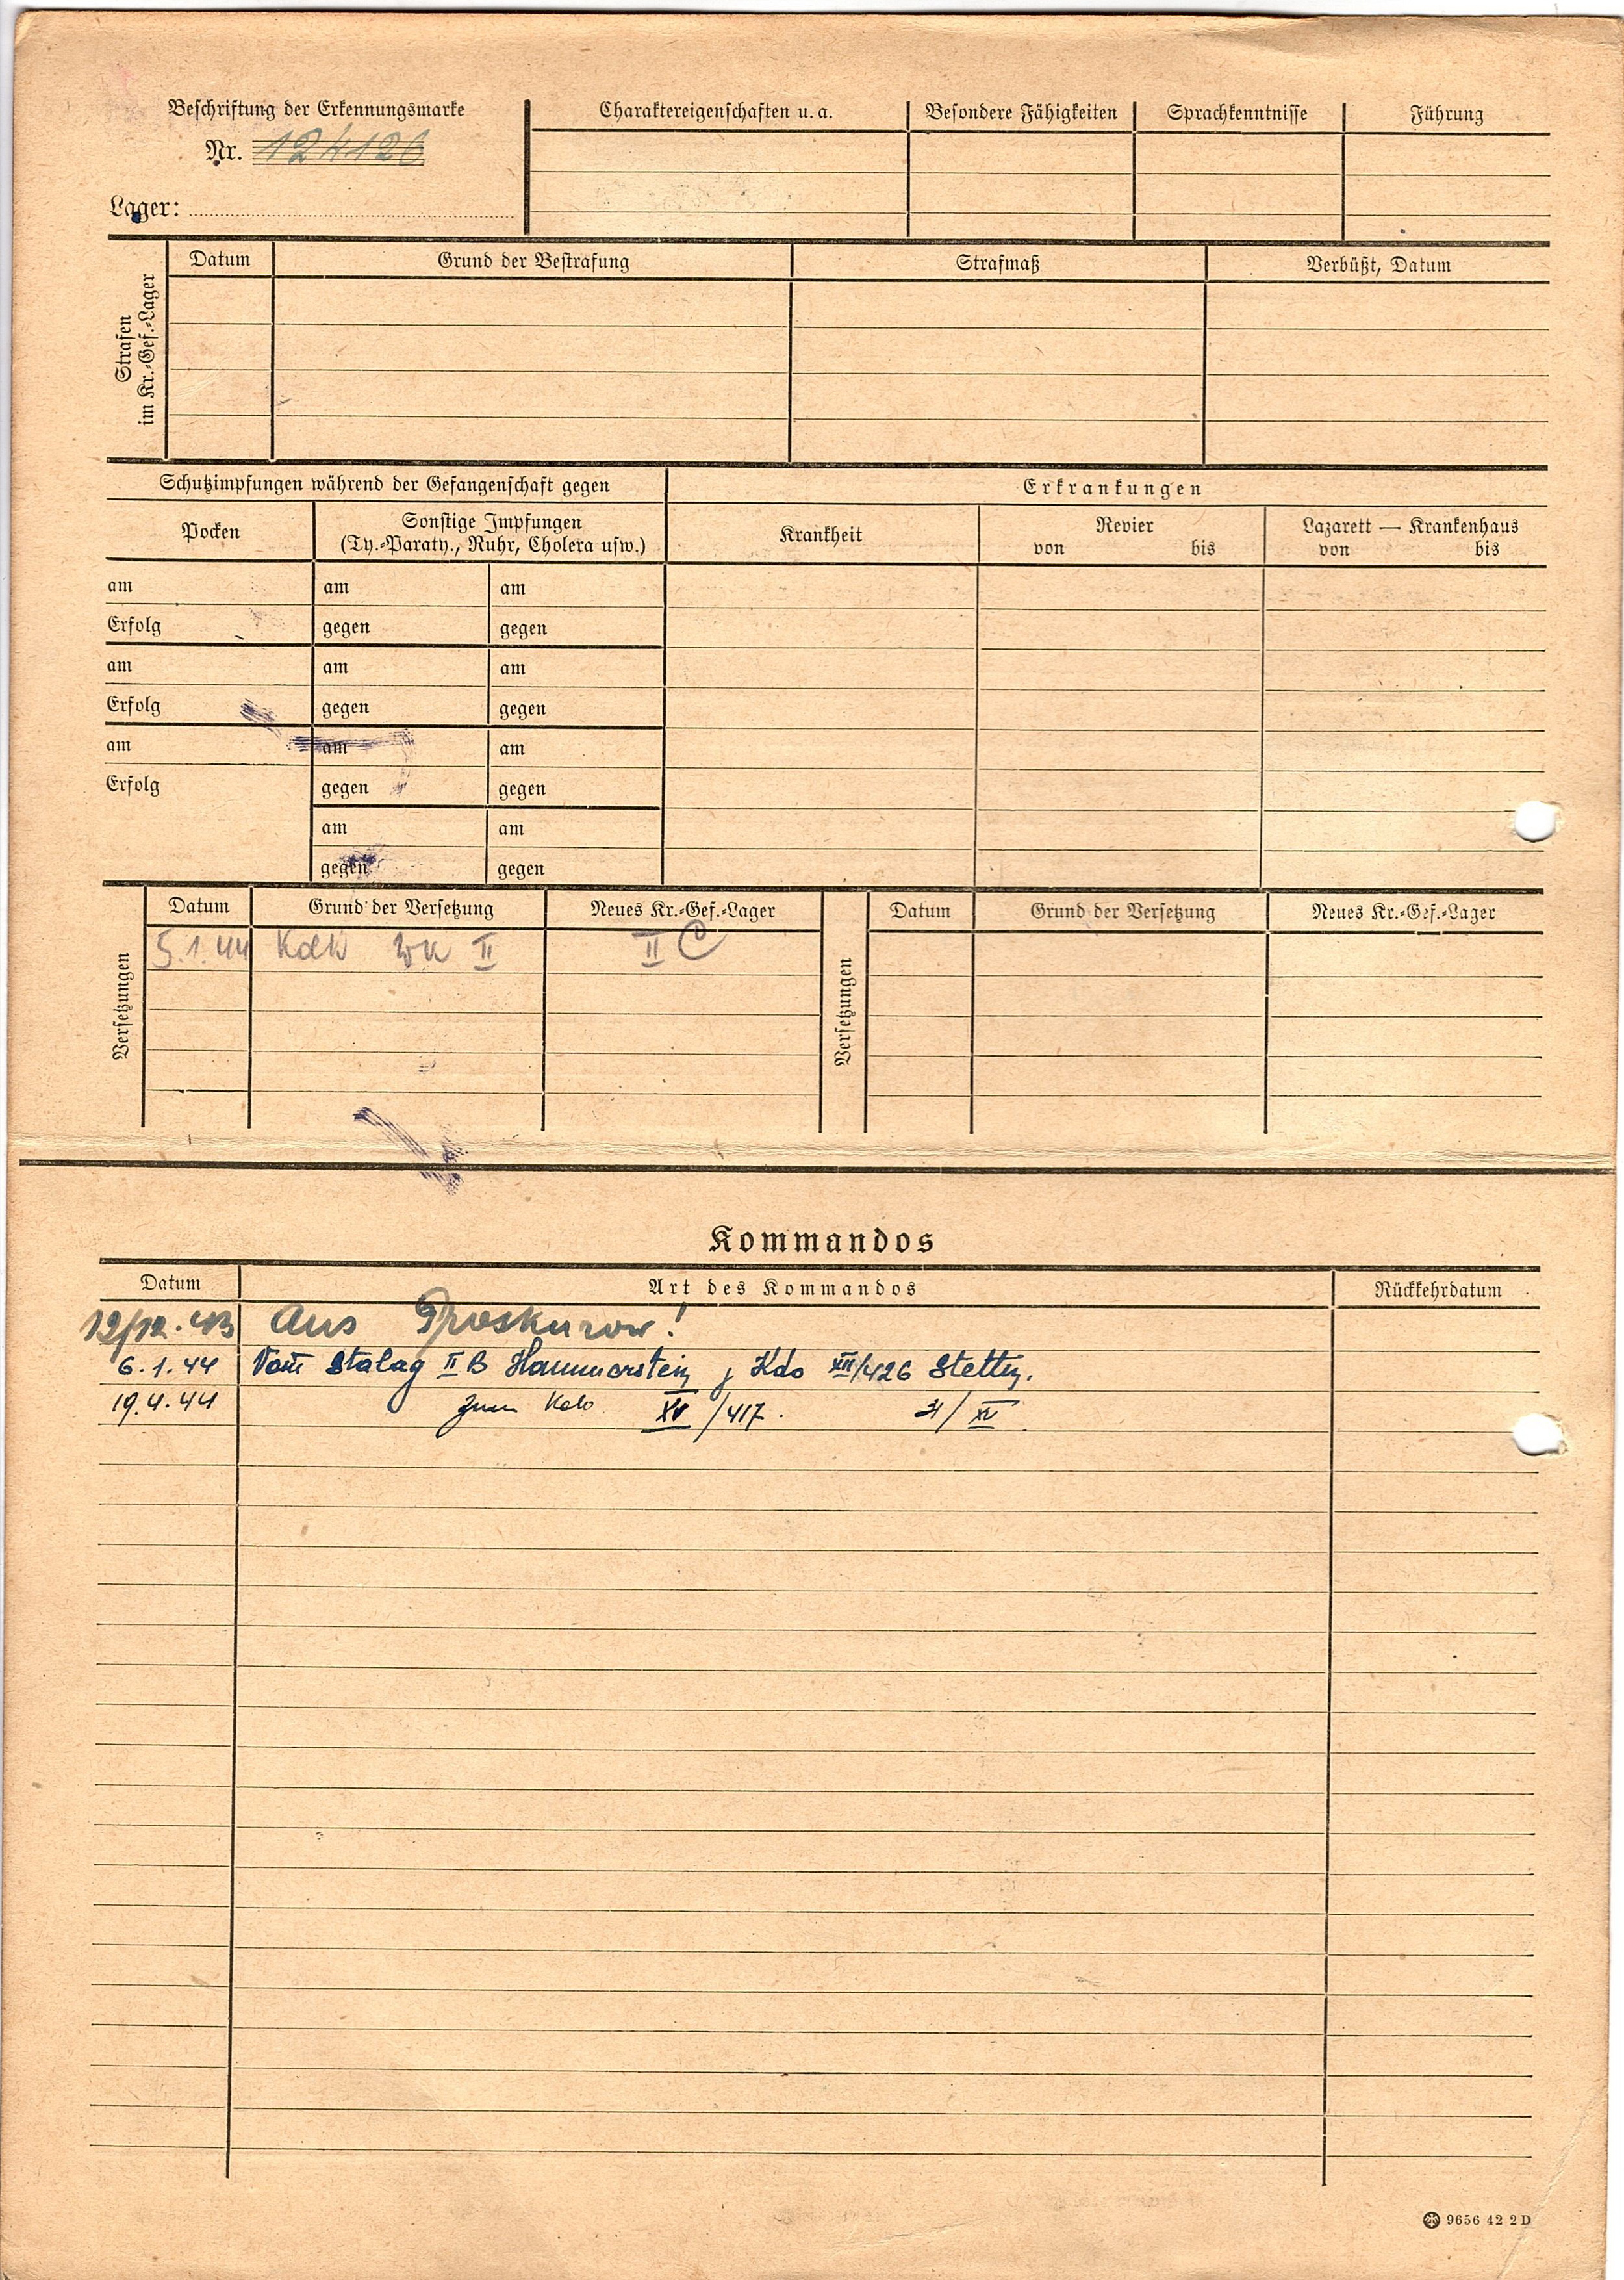 Beschriftung der Erkennungsmarke
Nr. 124126
Lager:
Charaktereigenschaften u. a.
Besondere Fähigkeiten
Sprachkenntnisse
Führung
Strafen
im Kr.-Gef.-Lager
Datum
Grund der Bestrafung
Strafmaß
Verbüßt, Datum
Schutzimpfungen während der Gefangenschaft gegen
Erkrankungen
Pocken
Sonstige Impfungen
(Ty.-Paraty., Ruhr, Cholera usw.)
Krankheit
Revier
von bis
Lazarett — Krankenhaus
von bis
am am am
Erfolg gegen gegen
am am am
Erfolg gegen gegen
am am am
Erfolg gegen gegen
am am
gegen gegen
Versetzungen
Datum Grund der Versetzung Neues Kr.-Gef.-Lager
5.1.44 II II C
Versetzungen
Datum Grund der Versetzung Neues Kr.-Gef.-Lager
Kommandos
Datum Art des Kommandos Rückkehrdatum
12/12.43 Aus Proskurow!
6.1.44 Vom Stalag II B Hammerstein z Kdo XIII/426 Stettin.
19.4.44 zum Kdo XV/417. /XV
9656 42 2 D